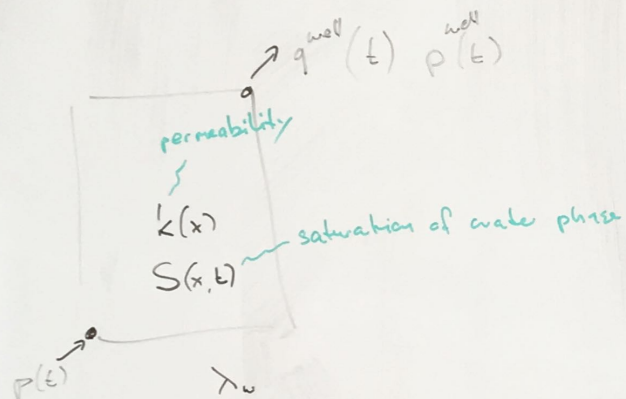 q^well (t) p^well (t)
permeability
k(x)
saturation of water phase
S(x,t)
p(t)
λ_w